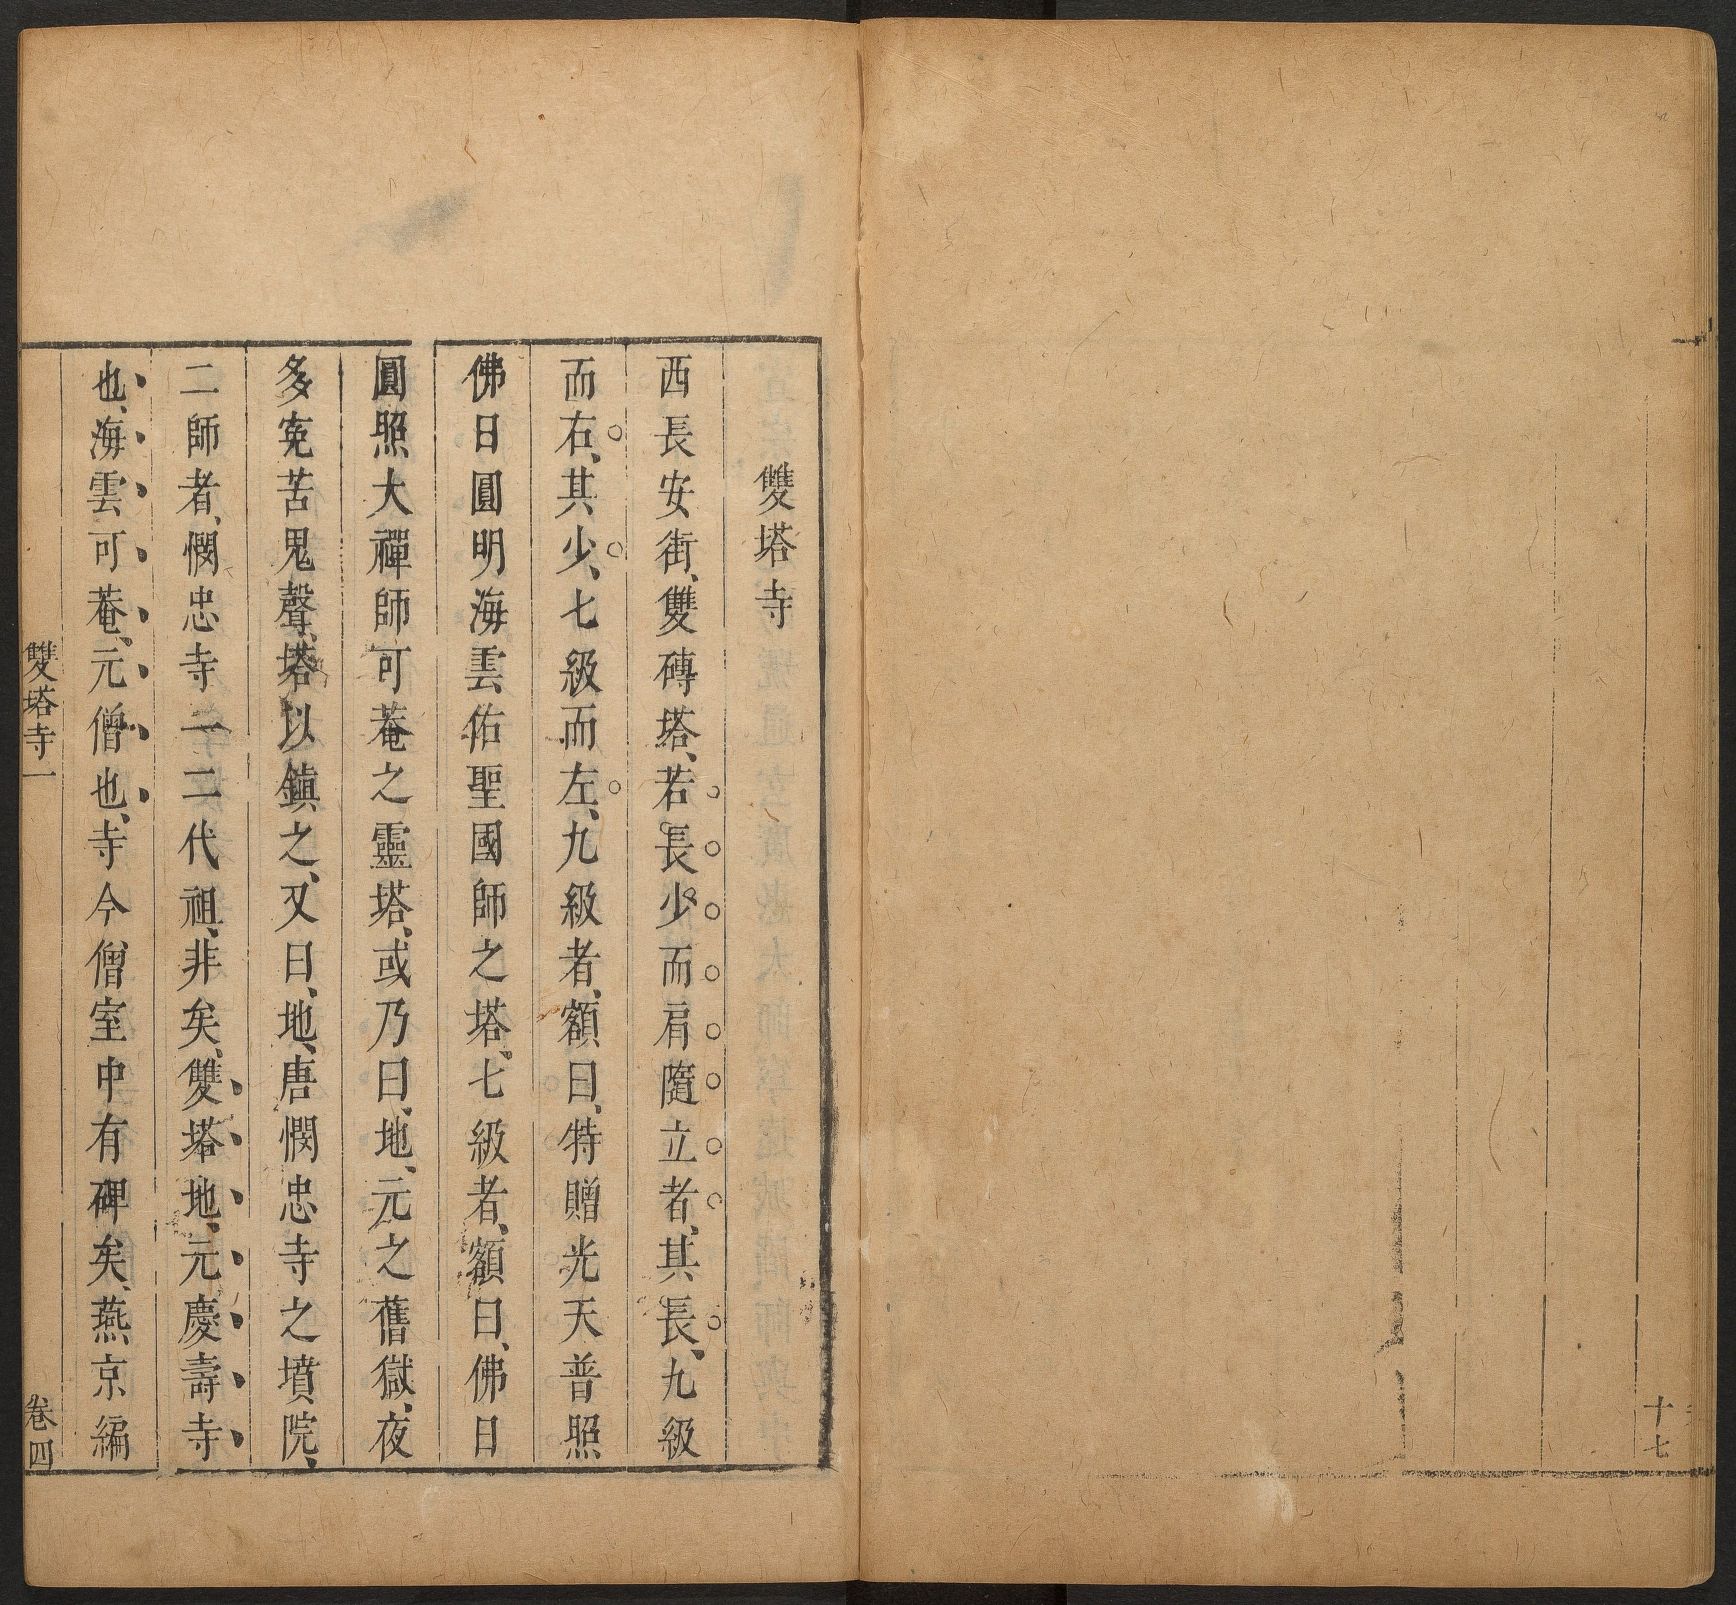 十七
雙塔寺
西長安街、雙磚塔、若長少而肩隨立者、其長、九級
而右、其少、七級而左、九級者、額曰、特贈光天普照
佛日圓明海雲佑聖國師之塔、七級者、額曰、佛日
圓照大禪師可菴之靈塔、或乃曰、地、元之舊獄、夜
多寃苦鬼聲、塔以鎮之、又曰、地、唐憫忠寺之墳院、
二師者、憫忠寺一二代祖、非矣、雙塔地、元慶壽寺
也、海雲可菴、元僧也、寺今僧室中有碑矣、燕京編
雙塔寺一 卷四